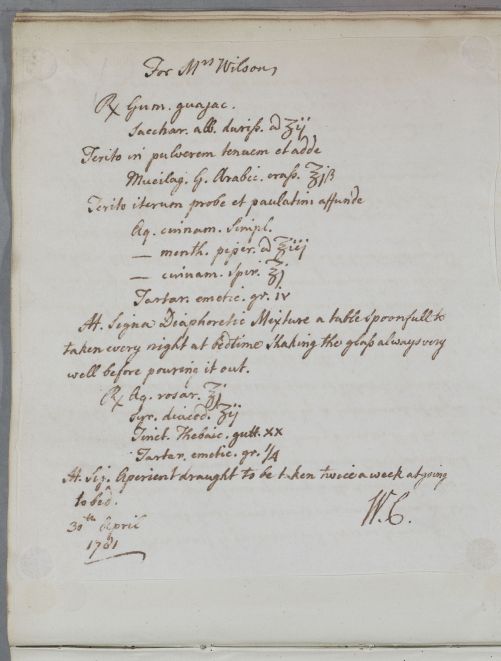 For Mrs Wilson,
℞ Gum. guajac.
Sacchar. alb. duriss. ā ʒij,
Terito in pulverem tenuem et adde
Mucilag. G. Arabic. crass. ℥jβ
Terito iterum probe et paulatim affunde
Aq. cinnam. Simpl.
— menth. piper. ā ℥iij
— cinnam. spir. ℥j
Tartar. emetic. gr. iv
M. Signa Diaphoretic Mixture a table spoonfull to
taken every night at bedtime shaking the glass always very
well before pouring it out.
℞ Aq. rosar. ℥j
Syr. diacod. ʒij
Tinct. Thebaic. gutt. xx
Tartar. emetic. gr. 1/4
M. Sig. Aperient draught to be taken twice a week at going
to bed.
30th April
1781
W. C.